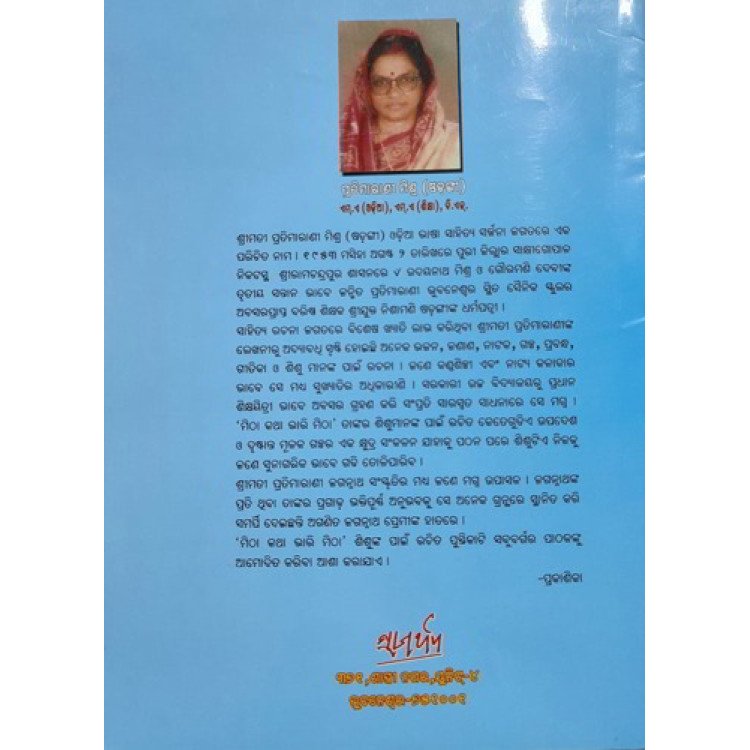 ପ୍ରତିମାରାଣୀ ମିଶ୍ର (ଷଡ଼ଙ୍ଗୀ)
ଏମ୍.ଏ (ଓଡ଼ିଆ), ଏମ୍.ଏ (ଶିକ୍ଷା), ବି.ଏଡ୍.
ଶ୍ରୀମତୀ ପ୍ରତିମାରାଣୀ ମିଶ୍ର (ଷଡ଼ଙ୍ଗୀ) ଓଡ଼ିଆ ଭାଷା ସାହିତ୍ୟ ସର୍ଜନା ଜଗତରେ ଏକ
ପରିଚିତ ନାମ । ୧୯୫୩ ମସିହା ଅଗଷ୍ଟ ୨ ତାରିଖରେ ପୁରୀ ଜିଲ୍ଲାର ସାକ୍ଷୀଗୋପାଳ
ନିକଟସ୍ଥ ଶ୍ରୀରାମଚନ୍ଦ୍ରପୁର ଶାସନରେ ୰ ଉଦୟନାଥ ମିଶ୍ର ଓ ଗୌରମଣି ଦେବୀଙ୍କ
ତୃତୀୟ ସନ୍ତାନ ଭାବେ ଜନ୍ମିତ ପ୍ରତିମାରାଣୀ ଭୁବନେଶ୍ୱର ସ୍ଥିତ ସୈନିକ ସ୍କୁଲର
ଅବସରପ୍ରାପ୍ତ ବରିଷ୍ଠ ଶିକ୍ଷକ ଶ୍ରୀଯୁକ୍ତ ନିଶାମଣି ଷଡ଼ଙ୍ଗୀଙ୍କ ଧର୍ମପତ୍ନୀ ।
ସାହିତ୍ୟ ରଚନା ଜଗତରେ ବିଶେଷ ଖ୍ୟାତି ଲାଭ କରିଥିବା ଶ୍ରୀମତୀ ପ୍ରତିମାରାଣୀଙ୍କ
ଲେଖନୀରୁ ଅଦ୍ୟାବଧି ସୃଷ୍ଟି ହୋଇଛି ଅନେକ ଭଜନ, ଜଣାଣ, ନାଟକ, ଗଳ୍ପ, ପ୍ରବନ୍ଧ,
ଗୀତିକା ଓ ଶିଶୁ ମାନଙ୍କ ପାଇଁ ରଚନା । ଜଣେ କଣ୍ଠଶିଳ୍ପୀ ଏବଂ ନାଟ୍ୟ କଳାକାର
ଭାବେ ସେ ମଧ୍ୟ ସୁଖ୍ୟାତିର ଅଧିକାରୀଣି । ସରକାରୀ ଉଚ୍ଚ ବିଦ୍ୟାଳୟରୁ ପ୍ରଧାନ
ଶିକ୍ଷୟିତ୍ରୀ ଭାବେ ଅବସର ଗ୍ରହଣ କରି ସଂପ୍ରତି ସାରସ୍ୱତ ସାଧନାରେ ସେ ମଗ୍ନ ।
‘ମିଠା କଥା ଭାରି ମିଠା’ ତାଙ୍କର ଶିଶୁମାନଙ୍କ ପାଇଁ ରଚିତ କେତେଗୁଡ଼ିଏ ଉପଦେଶ
ଓ ଦୃଷ୍ଟାନ୍ତ ମୂଳକ ଗଳ୍ପର ଏକ କ୍ଷୁଦ୍ର ସଂକଳନ ଯାହାକୁ ପଠନ ପରେ ଶିଶୁଟିଏ ନିଜକୁ
ଜଣେ ସୁନାଗରିକ ଭାବେ ଗଢି ତୋଳିପାରିବ ।
ଶ୍ରୀମତୀ ପ୍ରତିମାରାଣୀ ଜଗନ୍ନାଥ ସଂସ୍କୃତିର ମଧ୍ୟ ଜଣେ ମଗ୍ନ ଉପାସକ । ଜଗନ୍ନାଥଙ୍କ
ପ୍ରତି ଥିବା ତାଙ୍କର ପ୍ରଗାଢ଼ ଭକ୍ତିପୂର୍ଣ୍ଣ ଅନୁଭବକୁ ସେ ଅନେକ ଗ୍ରନ୍ଥରେ ସ୍ଥାନିତ କରି
ସମର୍ପି ଦେଇଛନ୍ତି ଅଗଣିତ ଜଗନ୍ନାଥ ପ୍ରେମୀଙ୍କ ହାତରେ ।
‘ମିଠା କଥା ଭାରି ମିଠା’ ଶିଶୁଙ୍କ ପାଇଁ ରଚିତ ପୁସ୍ତିକାଟି ସବୁବର୍ଗର ପାଠକଙ୍କୁ
ଆମୋଦିତ କରିବା ଆଶା କରାଯାଏ ।
-ପ୍ରକାଶିକା
ଶାସ୍ତ୍ରୀ ନଗର, ୟୁନିଟ୍-୪
ଭୁବନେଶ୍ୱର-୭୫୧୦୦୧